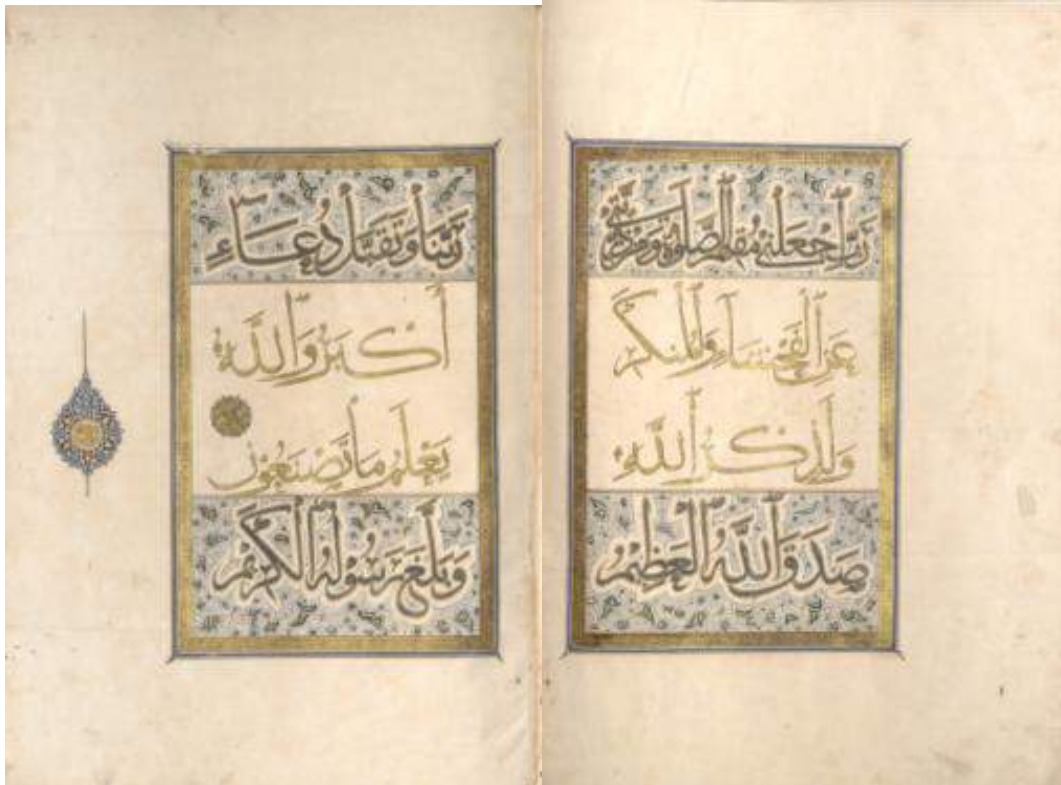 رَبِّ اجْعَلْنِي مُقِيمَ الصَّلَوةِ وَمِنْ ذُرِّيَّتِي
عَنِ الْفَحْشَاءِ وَالْمُنْكَرِ
وَلَذِكْرُ اللَّهِ
صَدَقَ اللَّهُ الْعَظِيمُ
رَبَّنَا وَتَقَبَّلْ دُعَاءِ
أَكْبَرُ وَاللَّهُ
يَعْلَمُ مَا تَصْنَعُونَ
وَبَلَّغَ رَسُولُهُ الْكَرِيمُ